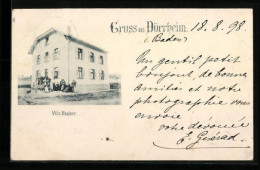 Gruss aus Dürrheim. 18.8.98.
(Baden)
Un gentil petit
bonjour, de bonne
amitié et notre
photographie vous
envoie
votre dévouée
Villa